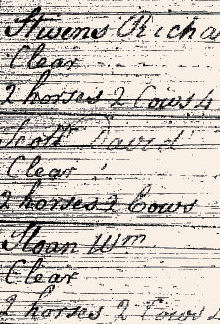 Stivens Richa
Clear
2 horses 2 Cows 4
Scott David
Clear
2 horses 2 Cows
Sloan Wm
Clear
2 horses 2 Cows